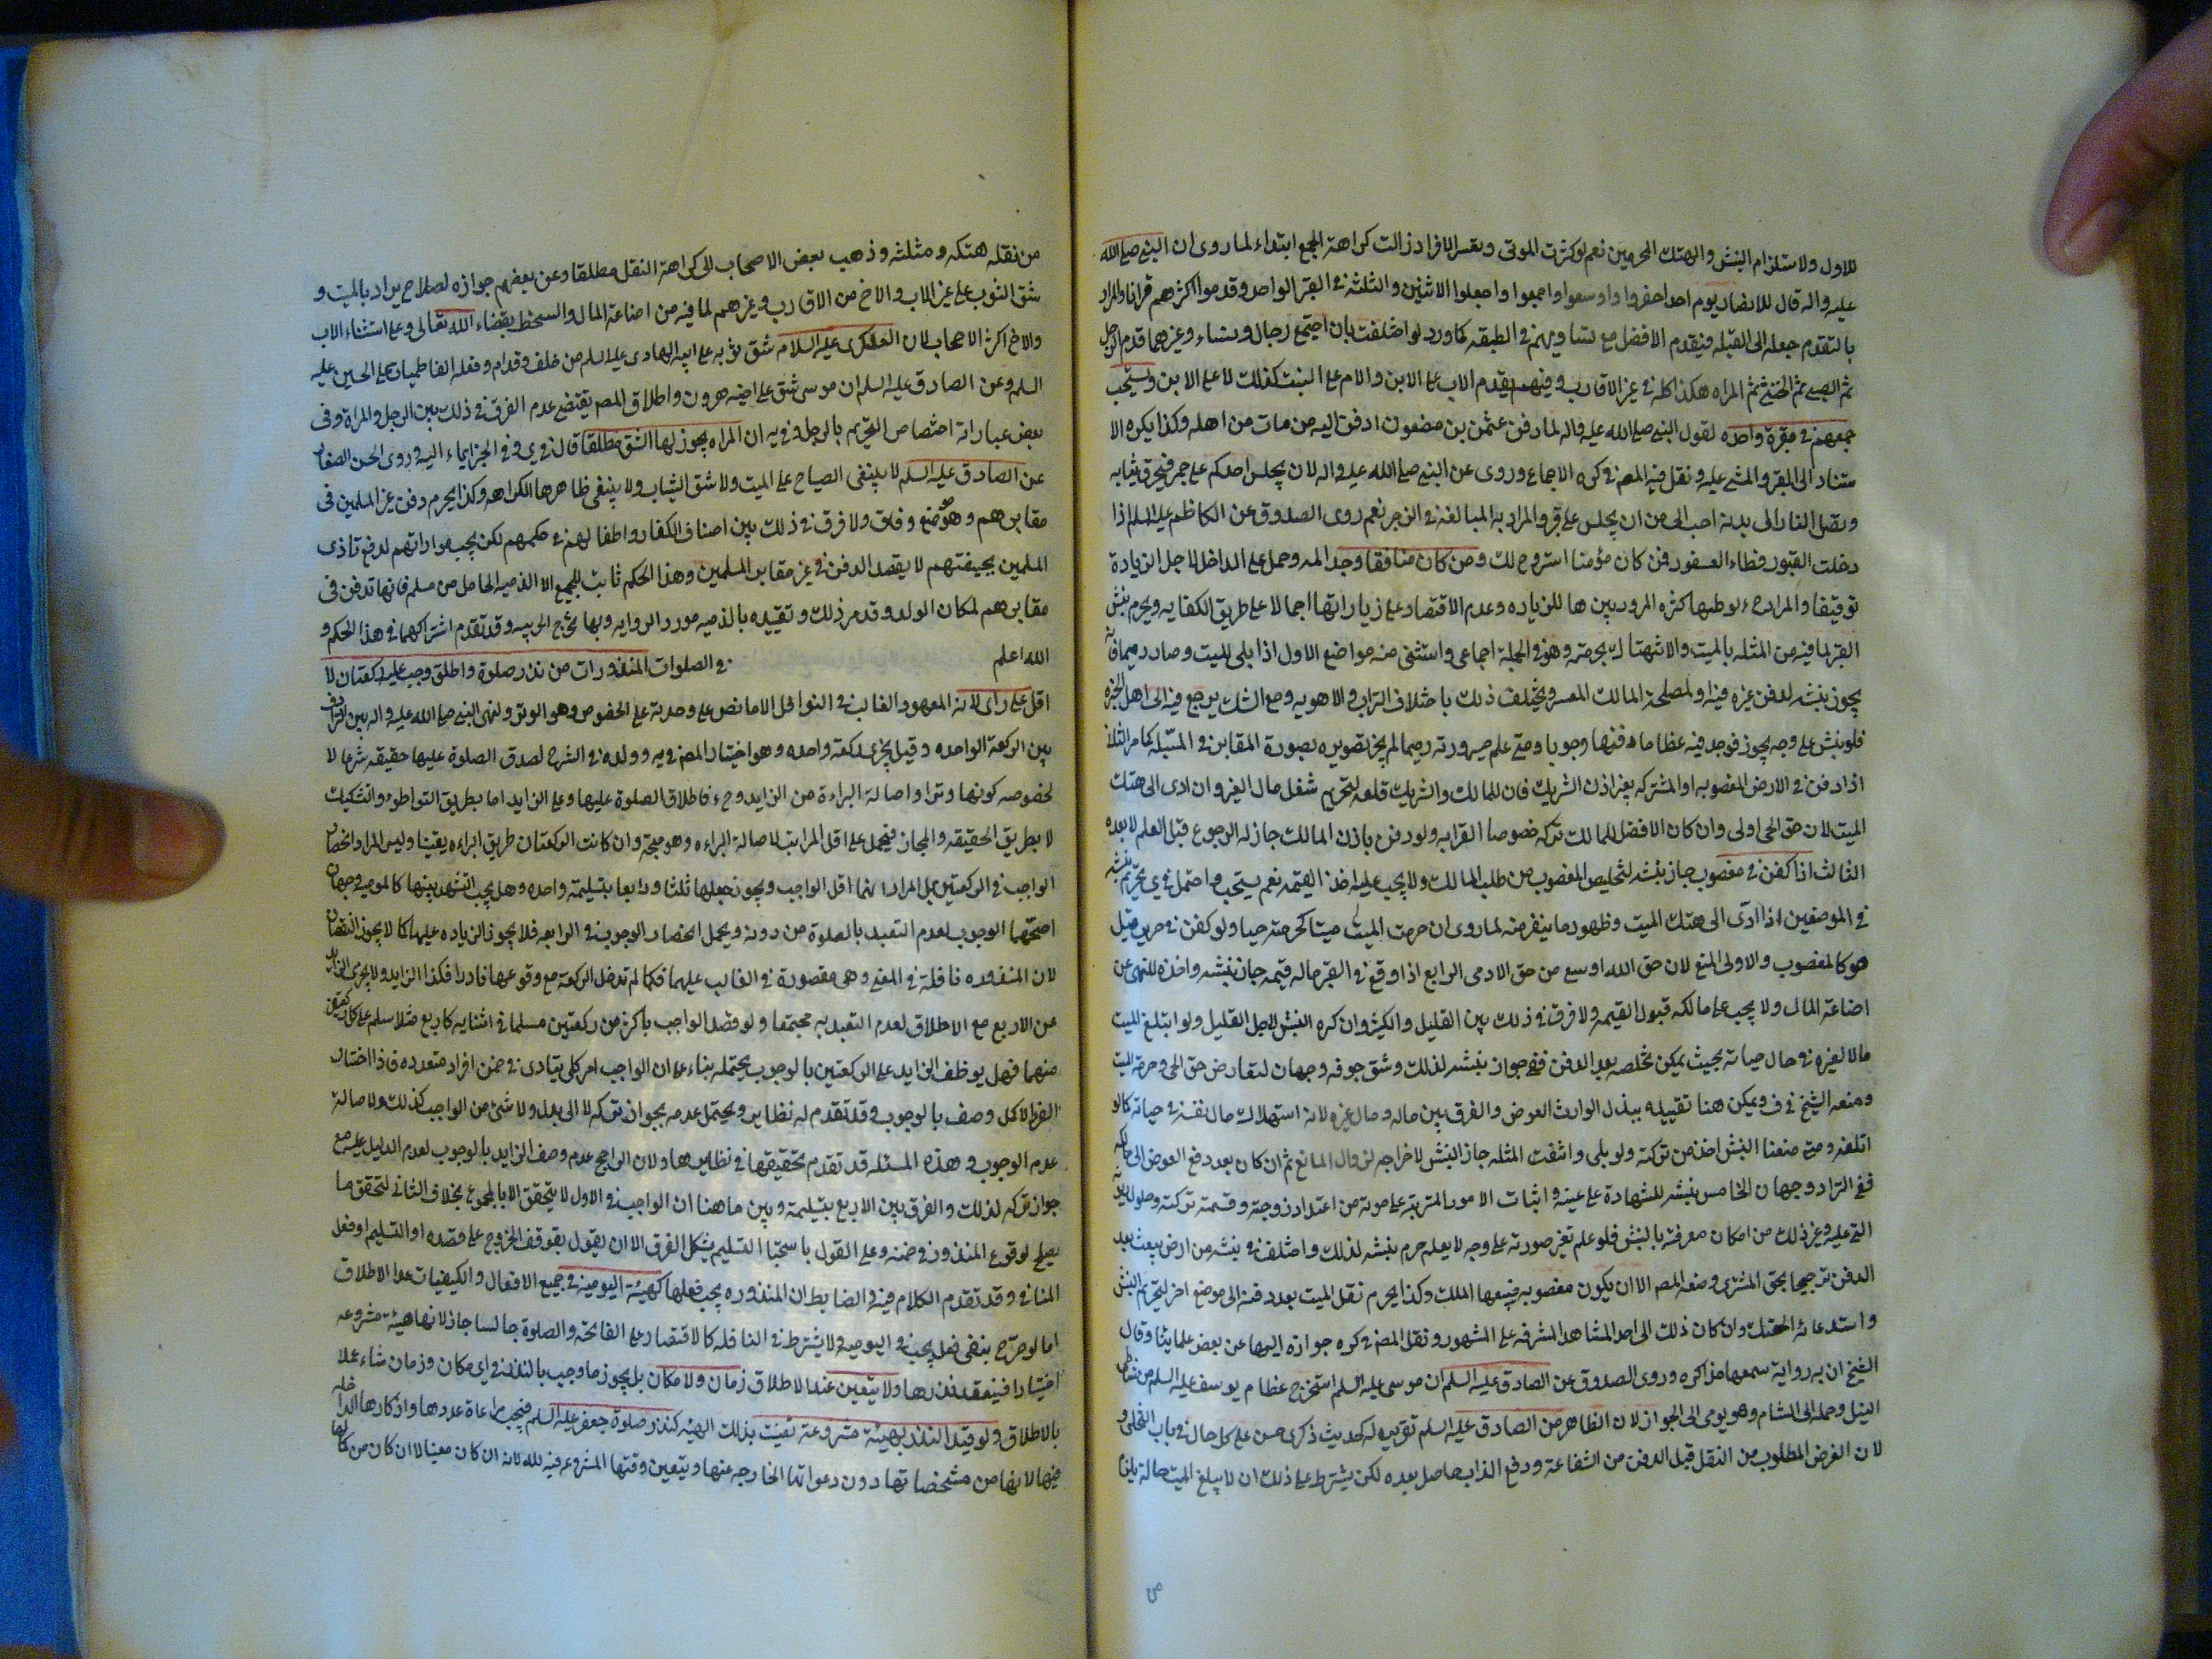 للاول ولاستلزام النبش والهتك المحرمين نعم لو كثرت الموتى وبعسر الافراد زالت كراهة الجمع ابتداء لما روى ان النبي صلى الله
عليه واله قال للانصار يوم احد احفروا واوسعوا واعمقوا واجعلوا الاثنين والثلثة في القبر الواحد وقدموا اكثرهم قرانا والمراد
بالتقدم جعله الى القبلة فيقدم الافضل مع تساويهم في الطبقه كما ورد لو اختلفت بان اجتمع رجال ونساء وغيرهما قدم الرجل
ثم الصبي ثم الخنثى ثم المراه هكذا كله في غير الاقارب وفيهم يقدم الاب على الابن والام على البنت كذلك لا على الابن ويستحب
جمعهم في مقبرة واحده لقول النبي صلى الله عليه واله لما دفن عثمن بن مضعون ادفن اليه من مات من اهله وكذا يكره الا
ستناد الى القبر والمشي عليه ونقل فيه المصنف في كره الاجماع وروى عن النبي صلى الله عليه واله لان يجلس احدكم على جمر فيحرق ثيابه
وتصل النار الى بدنه احب الى من ان يجلس على قبر والمراد به المبالغة في الزجر نعم روى الصدوق عن الكاظم عليه السلم اذا
دخلت القبور فطاء القبور فمن كان مؤمنا استروح لك ومن كان منافقا وجد المه وحمل على الداخل لاجل الزيادة
توفيقا والمراد ح لوطئها كثره المرور بينها للزياده وعدم الاقتصار على زياراتها اجمالا على طريق الكفايه ويحرم نبش
القبر لما فيه من المثله بالميت والانتهاك بحرمته وهو في الجملة اجماعي واستثنى منه مواضع الاول اذا بلي الميت وصار رميما فانه
يجوز نبشه لدفن غيره فيه او لمصلحة المالك المعير ويختلف ذلك باختلاف التراب والاهويه ومع الشك يرجع فيه الى اهل الخبره
فلو نبش على وجه يجوز فوجد فيه عظاما دفنها وجوبا ومتى علم صيرورته رميما لم يجز تصويره بصورة المقابر في المسبله كما مر الثاني
اذا دفن في الارض المغصوبه او المشتركه بغير اذن الشريك فان للمالك والشريك قلعه لتحريم شغل مال الغير وان ادى الى هتك
الميت لان حق الحي اولى وان كان الافضل للمالك تركه خصوصا القرابه ولو دفن باذن المالك جاز له الرجوع قبل الطم لا بعده
الثالث اذا كفن في مغصوب جاز نبشه لتخليص المغصوب من طلب المالك ولا يجب عليه اخذ القيمه نعم يستحب واحتمل في ى تحريم نبشه
في الموضعين اذا ادى الى هتك الميت وظهور ما ينفر منه لما روى ان حرمة الميت ميتا كحرمته حيا ولو كفن في حرير قيل
هو كالمغصوب والاولى المنع لان حق الله اوسع من حق الادمى الرابع اذا وقع في القبر ماله قيمه جاز نبشه واخذه للنهي عن
اضاعة المال ولا يجب على مالكه قبول القيمه ولا فرق في ذلك بين القليل والكثير وان كره النبش لاجل القليل ولو ابتلع الميت
مالا لغيره في حال حياته بحيث يمكن تخلصه بعد الدفن ففي جواز نبشه لذلك وشق جوفه وجهان لتعارض حق الحي وحرمة الميت
ومنعه الشيخ في ف ويمكن هنا تقييده ببذل الوارث العوض والفرق بين ماله ومال غيره لانه استهلاك مال نفسه في حياته كما لو
اتلفه ومتى منعنا النبش اخذ من تركته ولو بلي وانتفت المثله جاز النبش لاخراجه لزوال المانع ثم ان كان بعد دفع العوض الى مالكه
ففي التراد وجهان الخامس نبشه للشهادة على عينه واثبات الامور المترتبه على موته من اعتداد زوجته وقسمة تركته وحلول ديونه
التي عليه وغير ذلك من امكان معرفته بالنبش فلو علم تغير صورته على وجه لا يعلم حرم نبشه لذلك واختلف في نبشه من ارض بيعت بعد
الدفن ترجيحا بحق المشترى ومنعه المصنف الا ان يكون مغصوبه فبيعها المالك وكذا يحرم نقل الميت بعد دفنه الى موضع اخر لتحريم النبش
واستدعائه الهتك وان كان ذلك الى احد المشاهد المشرفه على المشهور ونقل المصنف في كره جوازه اليها عن بعض علمائنا وقال
الشيخ ان به رواية سمعها مذاكره وروى الصدوق عن الصادق عليه السلم ان موسى عليه السلم استخرج عظام يوسف عليه السلم من شاطئ
النيل وحمله الى الشام وهو يومى الى الجواز لان الظاهر من الصادق عليه السلم تقريره له كحديث ذكرى حسن على كل حال في باب التخلي و
لان الغرض المطلوب من النقل قبل الدفن من الشفاعة ودفع العذاب حاصل بعده لكن يشترط على ذلك ان لا يبلغ الميت حالة يلزم
من نقله هتكه ومثلته وذهب بعض الاصحاب الى كراهة النقل مطلقا وعن بعضهم جوازه لصلاح يراد بالميت و
شق الثوب على غير الاب والاخ من الاقارب وغيرهم لما فيه من اضاعة المال والسخط بقضاء الله تعالى وعلى استثناء الاب
والاخ اكثر الاصحاب لان العسكرى عليه السلام شق ثوبه على ابيه الهادى عليه السلم من خلف وقدام وفعله الفاطميات على الحسين عليه
السلم وعن الصادق عليه السلم ان موسى شق على اخيه هرون واطلاق المصنف يقتضي عدم الفرق في ذلك بين الرجل والمراة وفى
بعض عباراته اختصاص التحريم بالرجل وفي يه ان المراه يجوز لها الشق مطلقا قال في ى وفي الخبر ايماء اليه وروى الحسن الصفار
عن الصادق عليه السلم لا ينبغى الصياح على الميت ولا شق الثياب ولا ينبغى ظاهرها الكراهه وكذا يحرم دفن غير المسلمين فى
مقابرهم وهو موضع وفاق ولا فرق في ذلك بين اصناف الكفار واطفالهم في حكمهم لكن يجب مواراتهم لدفع تاذى
المسلمين بجيفتهم لا بقصد الدفن في غير مقابر المسلمين وهذا الحكم ثابت للجميع الا الذميه الحامل من مسلم فانها تدفن فى
مقابرهم لمكان الولد وقد مر ذلك وتقييده بالذميه مورد الروايه وبها تخرج الحربيه وقد تقدم اشتراكهما في هذا الحكم و
الله اعلم في الصلوات المنذورات من نذر صلوة واطلق وجب عليه ركعتان لا
اقل على راى لانه المعهود والغالب في النوافل الا ما نص على وحدته على الخصوص وهو الوتر ولنهى النبي صلى الله عليه واله
بين الركعة الواحده وقيل يجزى ركعة واحده وهو اختيار المصنف في يه وولده في الشرح لصدق الصلوة عليها حقيقه شرعا لا
لخصوصه كونها وترا واصالة البراءة من الزايد وح فاطلاق الصلوة عليها وعلى الزايد اما بطريق التواطؤ والتشكيك
لا بطريق الحقيقه والمجاز فيحمل على اقل المراتب لاصالة البراءه وهو متجه وان كانت الركعتان طريق البراءه يقينا وليس المراد انحصار
الواجب في الركعتين بل المراد انهما اقل الواجب ويجوز جعلها ثلثا ورابعا بتسليمة واحده وهل يجب التشهد بينها كاليوميه وجهان
اصحهما الوجوب لعدم التعبد بالصلوة من دونه ويحمل انحصار الوجوب في الرابعه فلا يجوز الزياده عليها كما لا يجوز النقصان
لان المنذوره نافلة في المعنى وهي مقصورة في الغالب عليهما فكما لم تدخل الركعة مع وقوعها نادرا فكذا الزايد ولا يجزى الزايد
عن الاربع مع الاطلاق لعدم التعبد به مجتمعا ولو قصد الواجب باكثر من ركعتين مسلما في اثنايه كاربع مثلا سلم على كل ركعتين
منهما فهل يوظف الزايد على الركعتين بالوجوب يحتمله بناء على ان الواجب امر كلي يتادى في ضمن افراد متعدده فاذا اختار
الفرد الاكمل وصف بالوجوب وقد تقدم له نظاير ويحتمل عدمه بجواز تركه لا الى بدل ولا شئ من الواجب كذلك ولاصالة
عدم الوجوب وهذه المسئله قد تقدم تحقيقها في نظايرها ولان الراجح عدم وصف الزايد بالوجوب لعدم الدليل عليه مع
جواز تركه لذلك والفرق بين الاربع بتسليمة وبين ما هنا ان الواجب في الاول لا يتحقق الا بالمجموع بخلاف الثانى لتحقق ما
يصلح لوقوع المنذور في ضمنه وعلى القول باستحباب التسليم يشكل الفرق الا ان يقول بتوقف الخروج على قصده او التسليم او فعل
المنافى وقد تقدم الكلام فيه والضابط ان المنذوره يجب فعلها كهيئة اليوميه في جميع الافعال والكيفيات عدا الاطلاق
اما لو صرح بنفى فعل يجب في اليوميه ولا يشترط في النافله كالاقتصار على الفاتحة والصلوة جالسا جاز لانها هيئة مشروعه
اختيارا فينعقد نذرها ولا يتعين عند الاطلاق زمان ولا مكان بل يجوز ما وجب بالنذر في اى مكان وزمان شاء عملا
بالاطلاق ولو قيد النذر بهيئة مشروعة تعينت بذلك الهيئه كنذر صلوة جعفر عليه السلم فيجب مراعاة عددها واذكارها الداخله
فيها لانها من مشخصاتها دون دعواتها الخارجه عنها ويتعين وقتها المشروعه فيه لله لانه ان كان معينا لا ان كان من